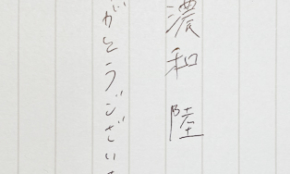 濃和 陸
がとうござい